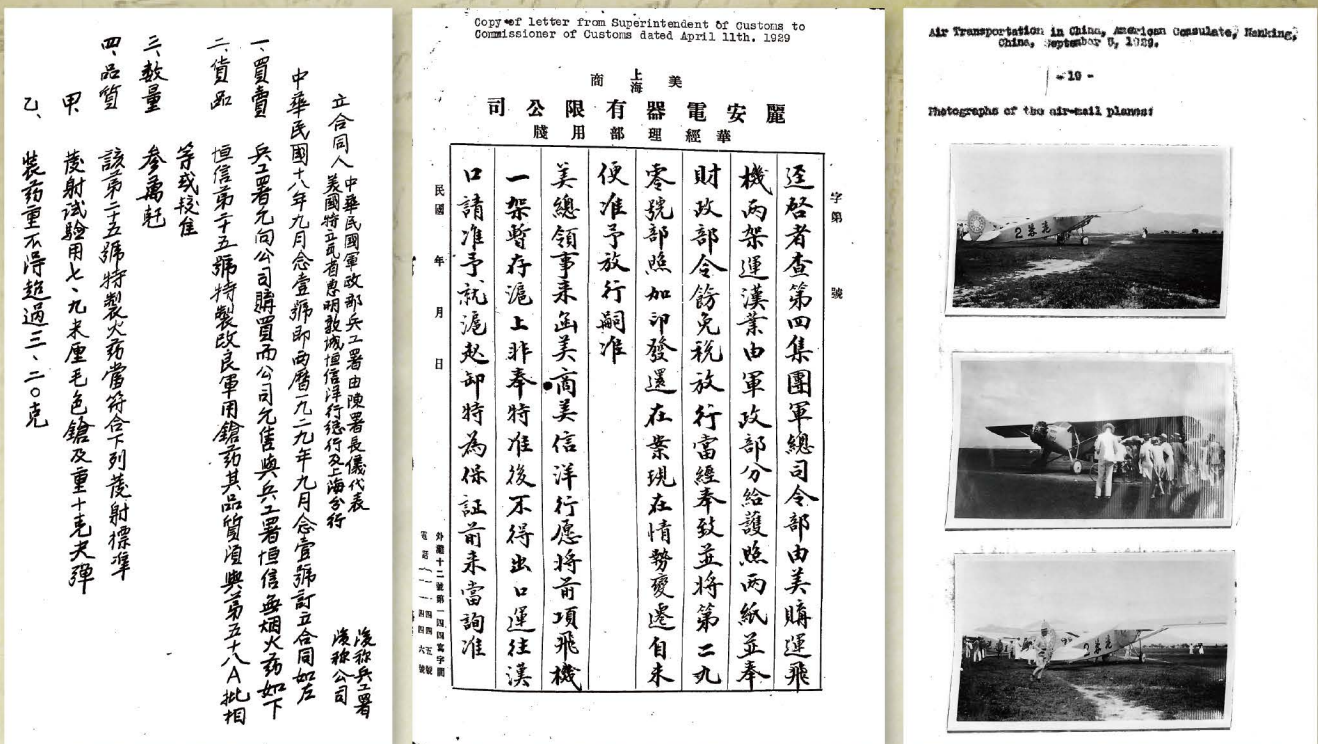 立合同人 中華民國軍政部兵工署由陳署長儀代表 後称兵工署
美國特立瓦省惠明敦城恒信洋行總行及上海分行 後称公司
中華民國十八年九月念壹號即西曆一九二九年九月念壹號訂立合同如左
一、買賣 兵工署允向公司購買而公司允售與兵工署恒信無烟火药如下
二、貨品 恒信第二十五號特製改良軍用鎗药其品質須與第五十八A批相
等或較佳
三、數量 參萬瓩
四、品質 該第二十五號特製火药當符合下列发射標準
甲 发射試驗用七、九米厘毛色鎗及重十克夹彈
乙、装药重不得超過三、二〇克
Copy of letter from Superintendent of Customs to
Commissioner of Customs dated April 11th. 1929
美上海商
麗安電器有限公司
華經理部用牋
字第 號
逕啓者查第四集團軍總司令部由美購運飛
機兩架運漢業由軍政部分給護照兩紙並奉
財政部令飭免稅放行當經奉致並將第二九
零號部照加印發還在案現在情勢變遷自未
便准予放行嗣准
美總領事来函美商美信洋行愿將前項飛機
一架暫存滬上非奉特准後不得出口運往漢
口請准予就滬起卸特為保証前来當詢准
民國 年 月 日
外灘十二號第一四四寫字間
電話 一一四四五號
一一四四六號
Air Transportation in China, American Consulate, Nanking,
China, September 5, 1929.
- 19 -
Photographs of the air-mail planes: